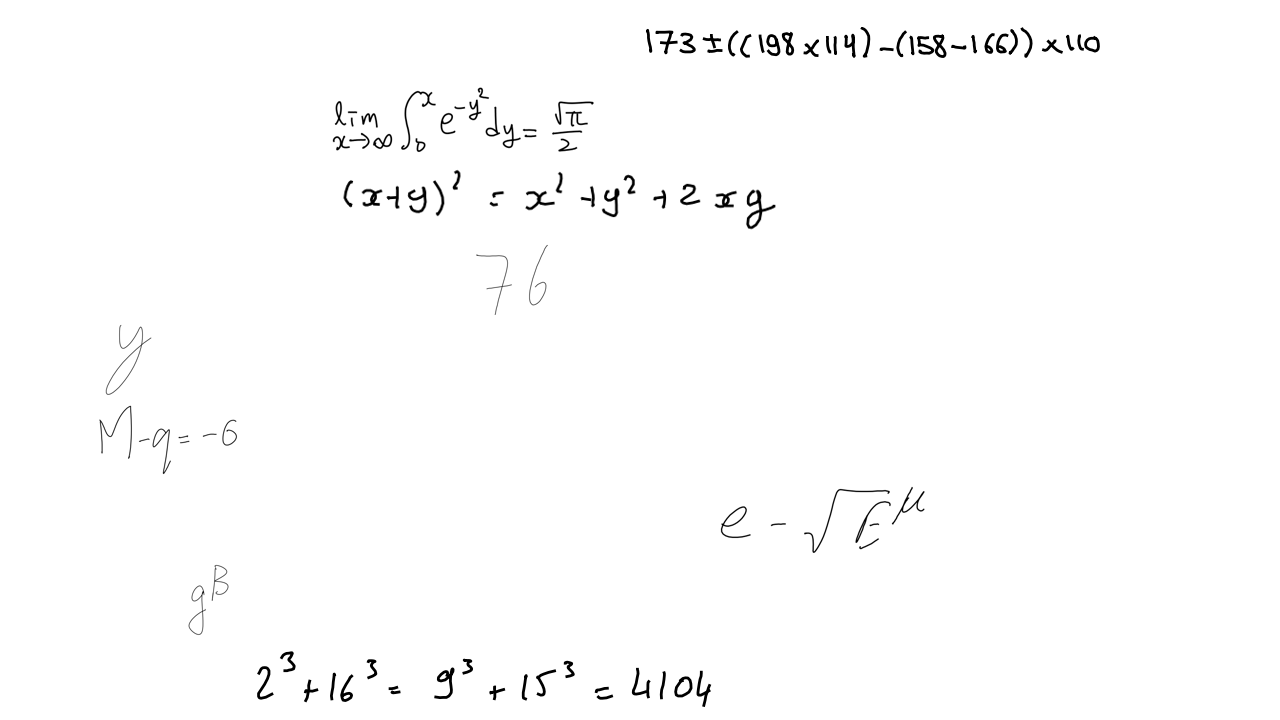 173 ± ((198 × 114) - (158 - 166)) × 110
lim x→∞ ∫₀ˣ e^{-y²} dy = √π/2
(x+y)² = x² + y² + 2xy
76
y
M - q = -6
e - √E^μ
g^B
2³ + 16³ = 9³ + 15³ = 4104